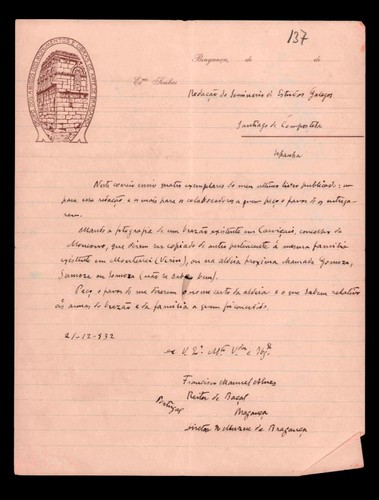 137
Bragança, de de
Ex.mo Senhor
Redação do Seminario de Estudos Galegos
Santiago de Compostela
Espanha
Neste correio envio quatro exemplares do meu ultimo livro publicado: um
para essa redação e os mais para os colaboradores a quem peço o favor de os entrega-
rem.
Mando a fotografia de um brazão existente em Carviçais, concelho de
Moncorvo, que dizem ser copiado de outro pertencente á mesma familia
existente em Monterrei (Verin), ou na aldeia proxima chamada Gomoza,
Samoza ou Somoza (não se sabe bem).
Peço o favor de me dizerem o nome certo da aldeia e o que sabem relativo
ás armas do brazão e da familia a quem foi concedido.
21-12-932
de V. Ex.ª M.to
Francisco Manuel Alves
Reitor de Baçal
Portugal Bragança
Director do Museu de Bragança